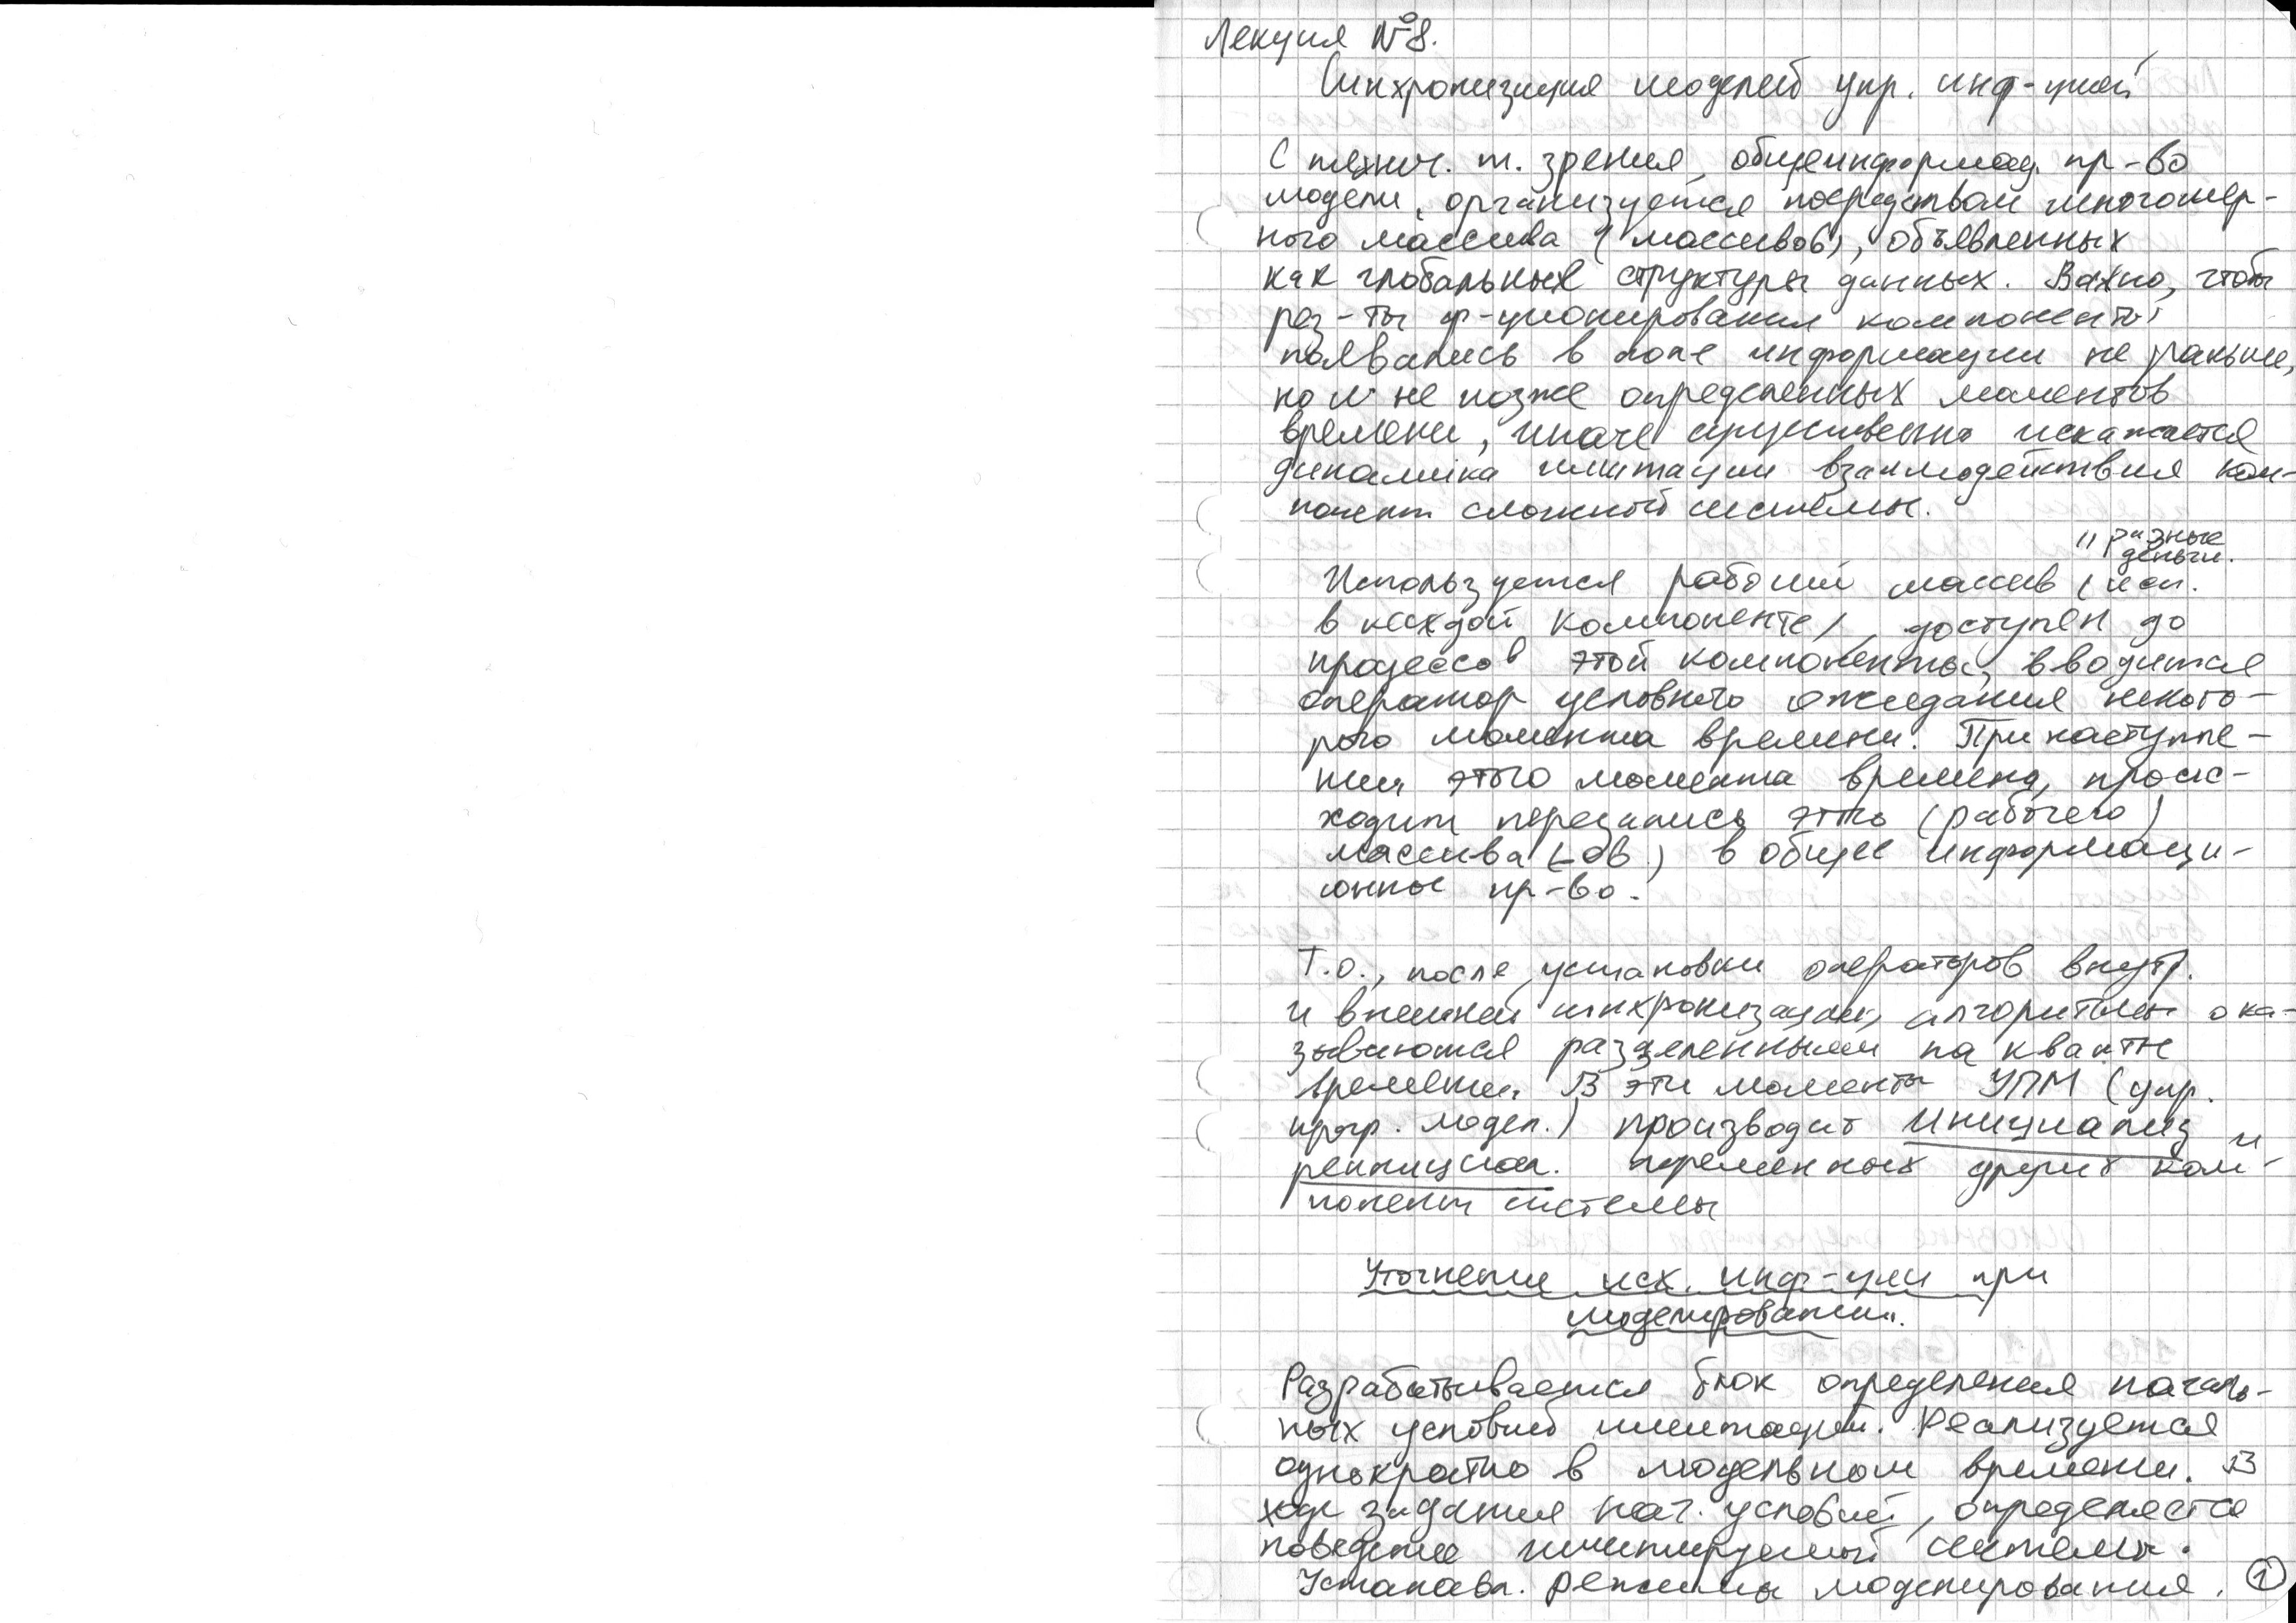 Лекция №8.
Синхронизация моделей упр. инф-цией
С технич. т. зрения, общеинформац. пр-во
модели, организуется посредством многомер-
ного массива (массивов), объявленных
как глобальные структуры данных. Важно, чтобы
рез-ты ф-ционирования компоненты
появлялись в поле информации не раньше,
но и не позже определенных моментов
времени, иначе существенно искажается
динамика имитации взаимодействия ком-
понент сложной системы.
"разные
деньги.
Используется рабочий массив (исп.
в каждой компоненте), доступен до
процессов этой компоненты, вводится
оператор условного ожидания некото-
рого момента времени. При наступле-
нии этого момента времени, проис-
ходит перезапись этого (рабочего)
массива (-ов) в общее информаци-
онное пр-во.
Т.о., после установки операторов внутр.
и внешней синхронизации, алгоритмы ока-
зываются разделенными на кванты
времени. В эти моменты УПМ (упр.
прогр. модел.) производит инициализ и
реинициал. переменных других ком-
понент системы
Уточнение исх. инф-ции при
моделировании.
Разрабатывается блок определения началь-
ных условий имитации. Реализуется
однократно в модельном времени. В
ходе задания нач. условий, определяется
поведение имитируемой системы.
Установл. режимы моделирования. 1